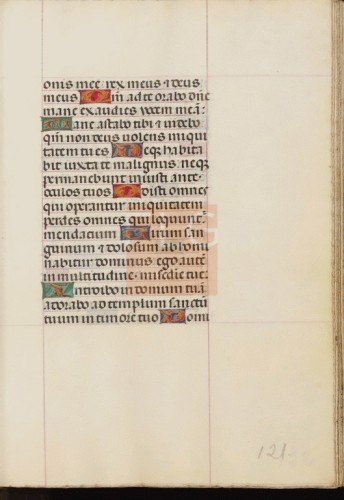 onis mee rex meus & deus
meus Qm ad te orabo dñe
mane exaudies vocem meā:
Mane astabo tibi & videbo
qm̄ non deus volens iniqui
tatem tu es Neqz habita
bit iuxta te malignus: neqz
permanebunt iniusti ante
oculos tuos Odisti omnes
qui operantur iniquitatem
perdes omnes qui loquunt̄
mendacium Virum san
guinum & dolosum abhomi
nabitur dominus: ego autē
in multitudine misedie tue
Introibo in domum tuā
adorabo ad templum sanctū
tuum in timore tuo Domi
121